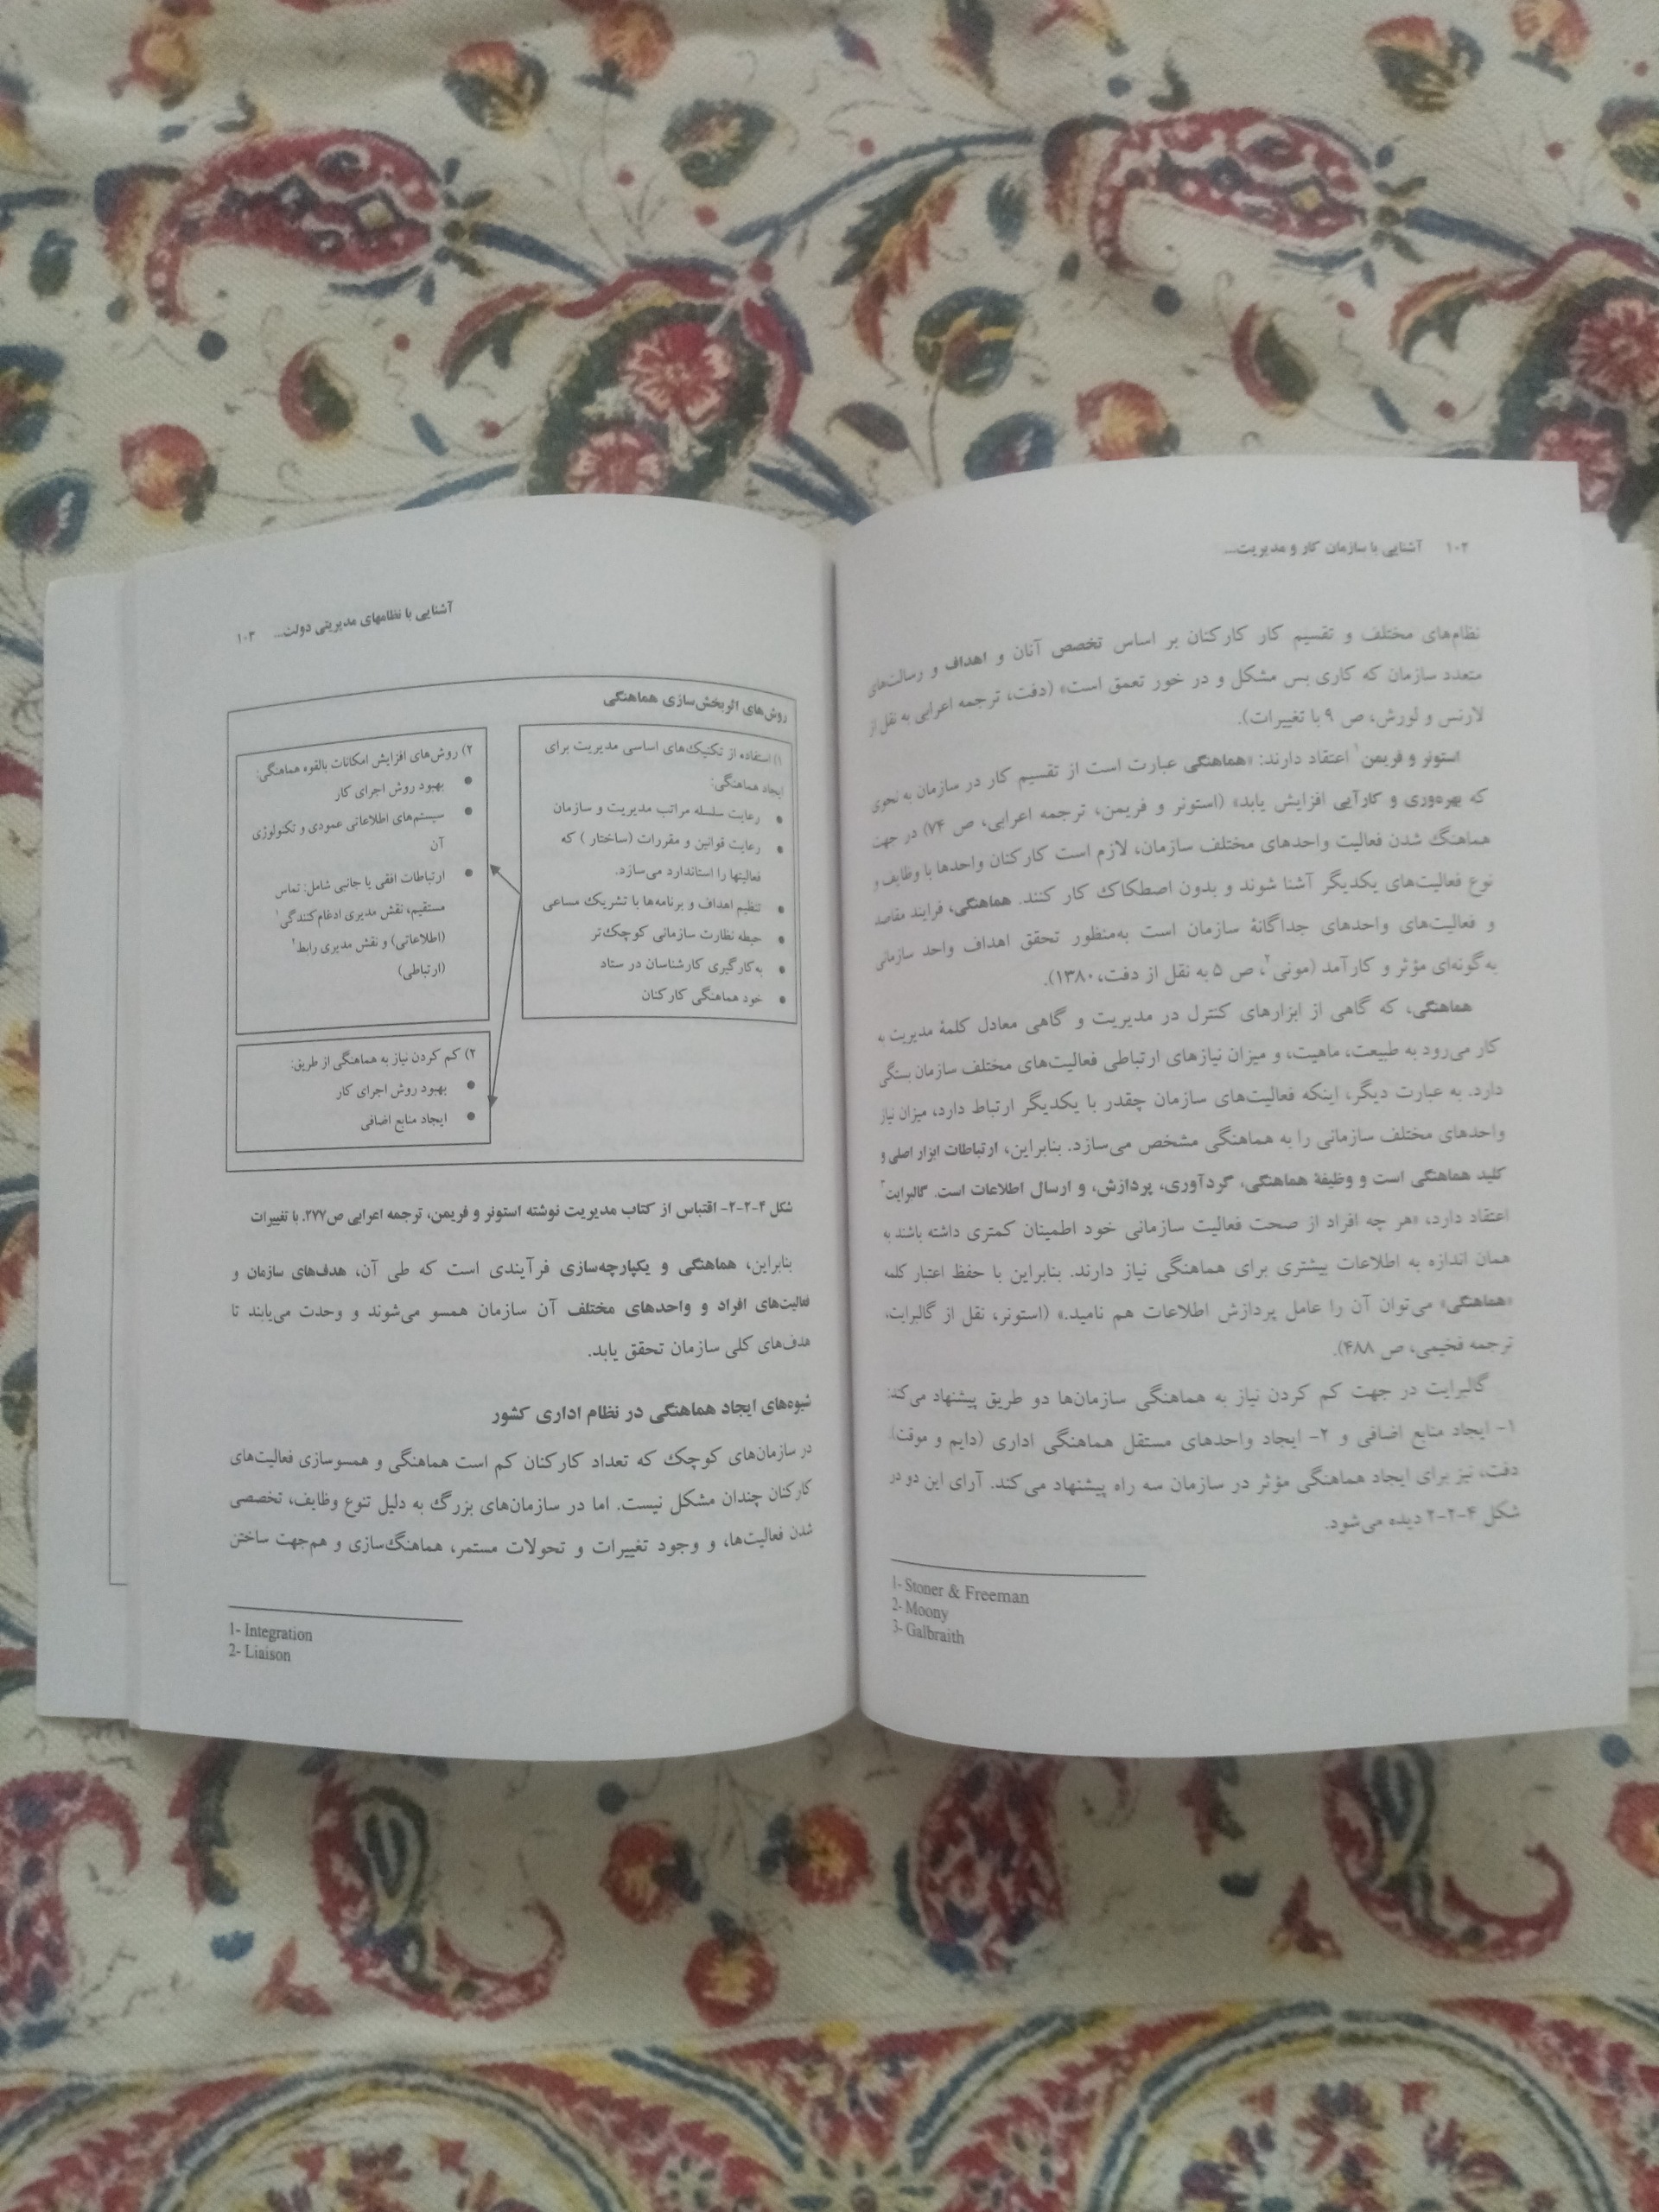 ۱۰۲ آشنایی با سازمان کار و مدیریت...
نظام‌های مختلف و تقسیم کار کارکنان بر اساس تخصص آنان و اهداف و رسالت‌های
متعدد سازمان که کاری بس مشکل و در خور تعمق است» (دفت، ترجمه اعرابی به نقل از
لارنس و لورش، ص ۹ با تغییرات).
استونر و فریمن۱ اعتقاد دارند: «هماهنگی عبارت است از تقسیم کار در سازمان به نحوی
که بهره‌وری و کارآیی افزایش یابد» (استونر و فریمن، ترجمه اعرابی، ص ۷۴) در جهت
هماهنگ شدن فعالیت واحدهای مختلف سازمان، لازم است کارکنان واحدها با وظایف و
نوع فعالیت‌های یکدیگر آشنا شوند و بدون اصطکاک کار کنند. هماهنگی، فرایند مقاصد
و فعالیت‌های واحدهای جداگانهٔ سازمان است به‌منظور تحقق اهداف واحد سازمانی
به‌گونه‌ای مؤثر و کارآمد (مونی۲، ص ۵ به نقل از دفت، ۱۳۸۰).
هماهنگی، که گاهی از ابزارهای کنترل در مدیریت و گاهی معادل کلمهٔ مدیریت به
کار می‌رود به طبیعت، ماهیت، و میزان نیازهای ارتباطی فعالیت‌های مختلف سازمان بستگی
دارد. به عبارت دیگر، اینکه فعالیت‌های سازمان چقدر با یکدیگر ارتباط دارد، میزان نیاز
واحدهای مختلف سازمانی را به هماهنگی مشخص می‌سازد. بنابراین، ارتباطات ابزار اصلی و
کلید هماهنگی است و وظیفهٔ هماهنگی، گردآوری، پردازش، و ارسال اطلاعات است. گالبرایت۳
اعتقاد دارد، «هر چه افراد از صحت فعالیت سازمانی خود اطمینان کمتری داشته باشند به
همان اندازه به اطلاعات بیشتری برای هماهنگی نیاز دارند. بنابراین با حفظ اعتبار کلمه
«هماهنگی» می‌توان آن را عامل پردازش اطلاعات هم نامید.» (استونر، نقل از گالبرایت،
ترجمه فخیمی، ص ۴۸۸).
گالبرایت در جهت کم کردن نیاز به هماهنگی سازمان‌ها دو طریق پیشنهاد می‌کند:
۱- ایجاد منابع اضافی و ۲- ایجاد واحدهای مستقل هماهنگی اداری (دایم و موقت).
دفت، نیز برای ایجاد هماهنگی مؤثر در سازمان سه راه پیشنهاد می‌کند. آرای این دو در
شکل ۴-۲-۲ دیده می‌شود.
1- Stoner & Freeman
2- Moony
3- Galbraith
آشنایی با نظامهای مدیریتی دولت... ۱۰۳
روش‌های اثربخش‌سازی هماهنگی
۱) استفاده از تکنیک‌های اساسی مدیریت برای
ایجاد هماهنگی:
• رعایت سلسله مراتب مدیریت و سازمان
• رعایت قوانین و مقررات (ساختار) که
فعالیتها را استاندارد می‌سازد.
• تنظیم اهداف و برنامه‌ها با تشریک مساعی
• حیطه نظارت سازمانی کوچک‌تر
• به‌کارگیری کارشناسان در ستاد
• خود هماهنگی کارکنان
۲) روش‌های افزایش امکانات بالقوه هماهنگی:
• بهبود روش اجرای کار
• سیستم‌های اطلاعاتی عمودی و تکنولوژی
آن
• ارتباطات افقی یا جانبی شامل: تماس
مستقیم، نقش مدیری ادغام‌کنندگی۱
(اطلاعاتی) و نقش مدیری رابط۲
(ارتباطی)
۲) کم کردن نیاز به هماهنگی از طریق:
• بهبود روش اجرای کار
• ایجاد منابع اضافی
شکل ۴-۲-۲- اقتباس از کتاب مدیریت نوشته استونر و فریمن، ترجمه اعرابی ص۲۷۷. با تغییرات
بنابراین، هماهنگی و یکپارچه‌سازی فرآیندی است که طی آن، هدف‌های سازمان و
فعالیت‌های افراد و واحدهای مختلف آن سازمان همسو می‌شوند و وحدت می‌یابند تا
هدف‌های کلی سازمان تحقق یابد.
شیوه‌های ایجاد هماهنگی در نظام اداری کشور
در سازمان‌های کوچک که تعداد کارکنان کم است هماهنگی و همسوسازی فعالیت‌های
کارکنان چندان مشکل نیست. اما در سازمان‌های بزرگ به دلیل تنوع وظایف، تخصصی
شدن فعالیت‌ها، و وجود تغییرات و تحولات مستمر، هماهنگ‌سازی و هم‌جهت ساختن
1- Integration
2- Liaison